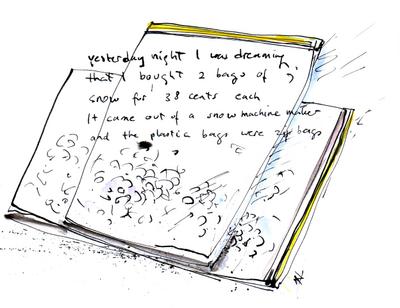 yesterday night I was dreaming,
that I bought 2 bags of
snow for 38 cents each
It came out of a snow machine maker
and the plastic bags were zip bags